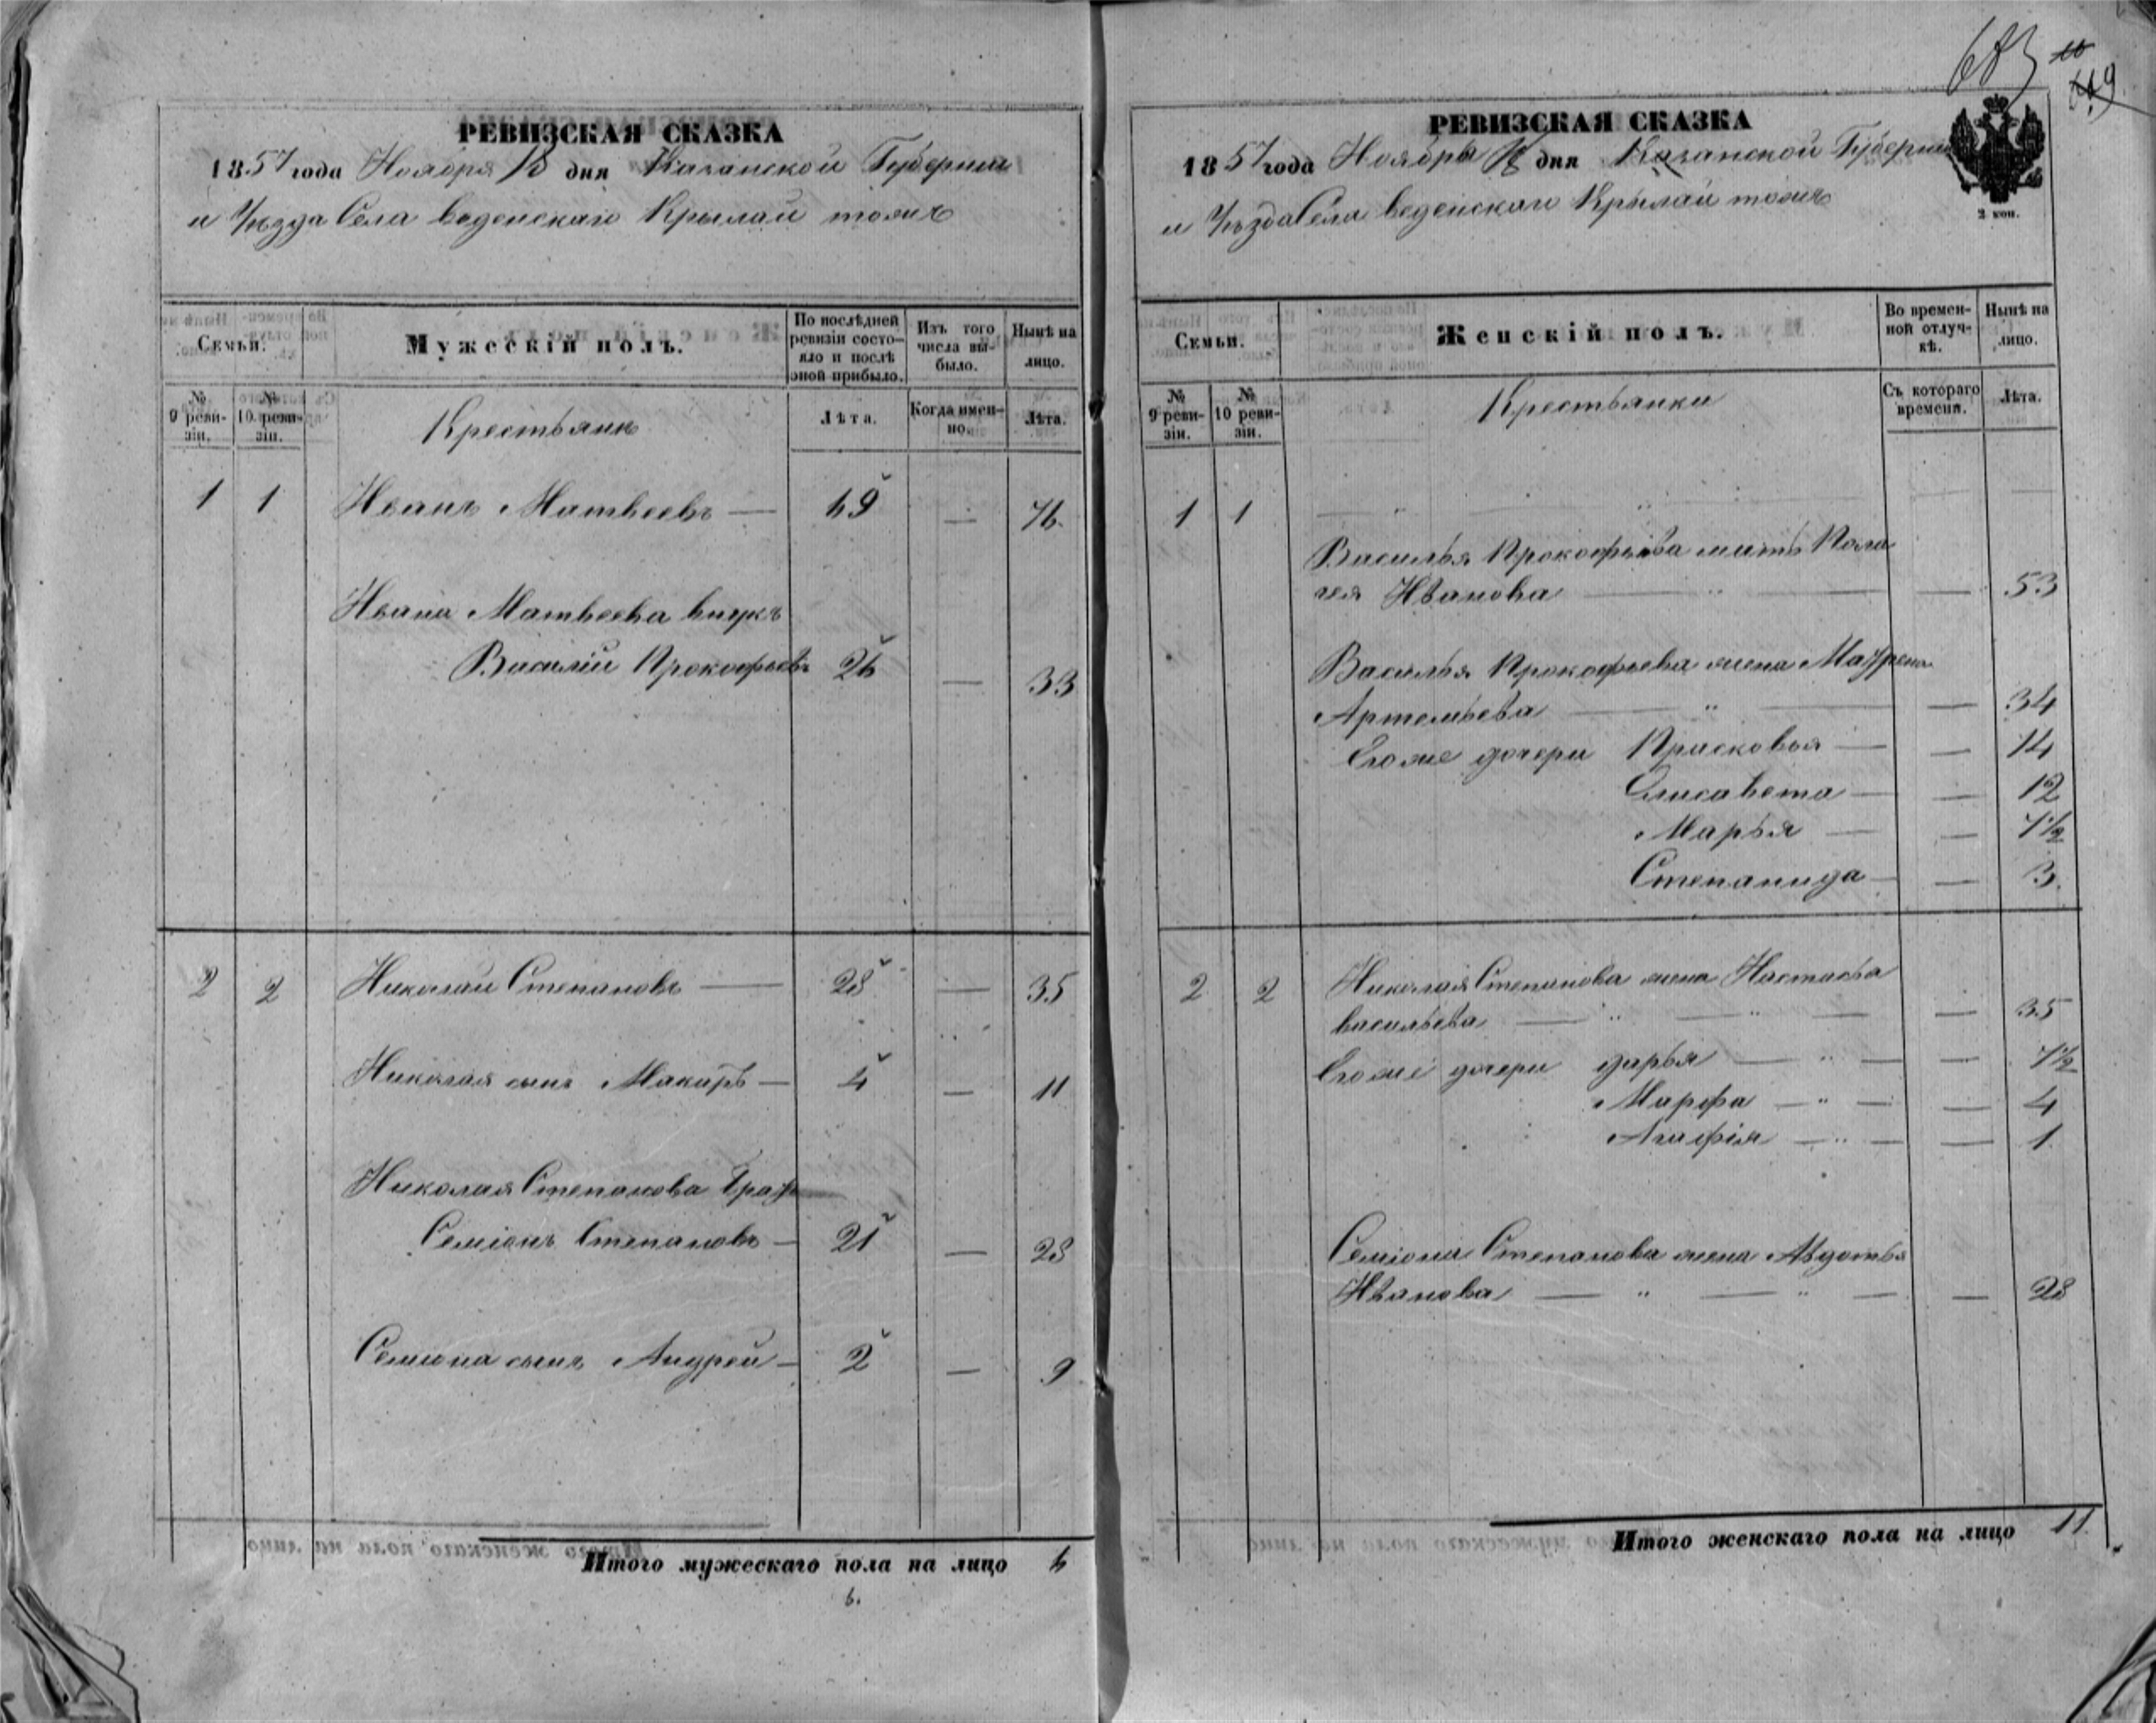 683
РЕВИЗСКАЯ СКАЗКА
1857 года Ноября 18 дня Казанской Губернии
и Уѣзда Села Веденскаго Крылай тожъ
Семьи.
Мужескій полъ.
По послѣдней ревизіи состояло и послѣ оной прибыло.
Изъ того числа выбыло.
Нынѣ на лицо.
№ 9 ревизіи.
№ 10 ревизіи.
Крестьянъ
Лѣта.
Когда именно.
Лѣта.
1 1 Иванъ Матвеевъ — 69 — 76.
Ивана Матвеева внукъ
Василій Прокофьевъ 26 — 33
2 2 Николай Степановъ — 28 — 35
Николая сынъ Макаръ — 4 — 11
Николая Степанова братъ
Семіонъ Степановъ — 21 — 28
Семиона сынъ Андрей — 2 — 9
Итого мужескаго пола на лицо 6
6.
РЕВИЗСКАЯ СКАЗКА
1857 года Ноября 18 дня Казанской Губернии
и Уѣзда Села Веденскаго Крылай тожъ
2 коп.
Семьи.
Женскій полъ.
Во временной отлучкѣ.
Нынѣ на лицо.
№ 9 ревизіи.
№ 10 ревизіи.
Крестьянки
Съ котораго времени.
Лѣта.
1 1 — " — " — — —
Василья Прокофьива мать Пола
гея Иванова — " — — 53
Василья Прокофьева жена Маѵрена
Артемьева — " — — 34
Егоже дочери Прасковья — — 14
Елисавета — — 12
Марья — — 7½
Степанида — — 3.
2 2 Николая Степанова жена Настасья
Васильева — " — " — — 35
Егоже дочери Дарья — " — — 7½
Марфа — " — — 4
Агафія — " — — 1.
Семіона Степанова жена Авдотья
Иванова — " — " — — 28
Итого женскаго пола на лицо 11.